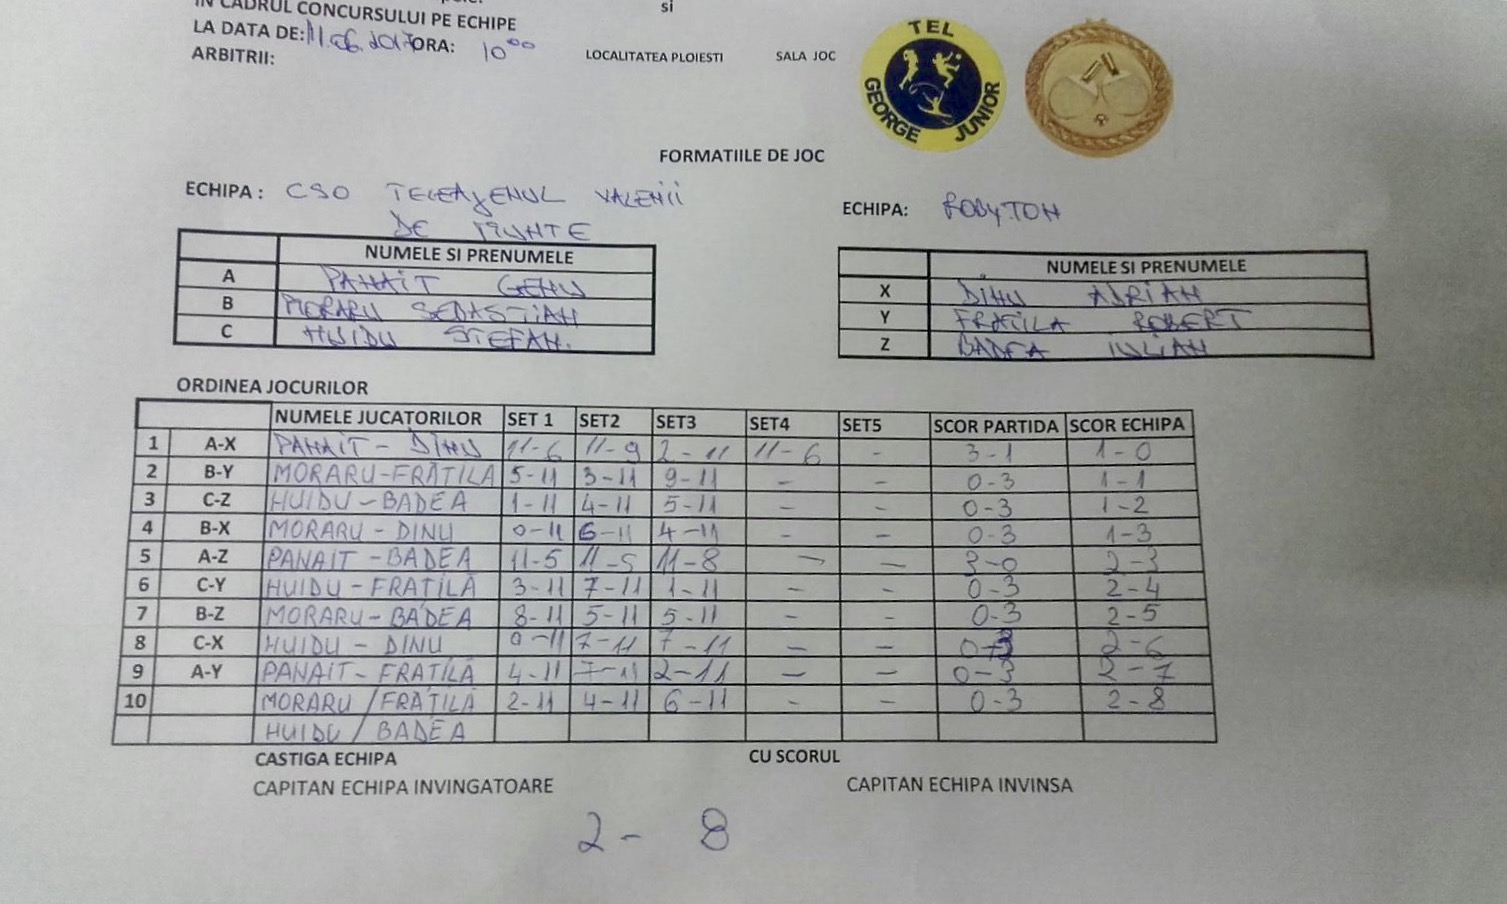 IN CADRUL CONCURSULUI PE ECHIPE
si
LA DATA DE: 11.06.2017 ORA: 10⁰⁰
ARBITRII:
LOCALITATEA PLOIESTI SALA JOC
TEL GEORGE JUNIOR
FORMATIILE DE JOC
ECHIPA: CSO TELEAJENUL VALENII
DE MUNTE
ECHIPA: ROBYTON
NUMELE SI PRENUMELE
A PANAIT GENU
B MORARU SEBASTIAN
C HUIDU STEFAN.
NUMELE SI PRENUMELE
X DINU ADRIAN
Y FRATILA ROBERT
Z BADEA IULIAN
ORDINEA JOCURILOR
NUMELE JUCATORILOR SET 1 SET2 SET3 SET4 SET5 SCOR PARTIDA SCOR ECHIPA
1 A-X PANAIT - DINU 11-6 11-9 2-11 11-6 - 3-1 1-0
2 B-Y MORARU-FRĂTILĂ 5-11 3-11 9-11 - - 0-3 1-1
3 C-Z HUIDU-BADEA 1-11 4-11 5-11 - - 0-3 1-2
4 B-X MORARU-DINU 0-11 6-11 4-11 - - 0-3 1-3
5 A-Z PANAIT-BADEA 11-5 11-5 11-8 - - 3-0 2-3
6 C-Y HUIDU-FRATILĂ 3-11 7-11 1-11 - - 0-3 2-4
7 B-Z MORARU-BADEA 8-11 5-11 5-11 - - 0-3 2-5
8 C-X HUIDU - DINU 0-11 7-11 7-11 - - 0-3 2-6
9 A-Y PANAIT-FRATILĂ 4-11 7-11 2-11 - - 0-3 2-7
10 MORARU/FRĂTILĂ 2-11 4-11 6-11 - - 0-3 2-8
HUIDU/BADEA
CASTIGA ECHIPA CU SCORUL
CAPITAN ECHIPA INVINGATOARE CAPITAN ECHIPA INVINSA
2 - 8